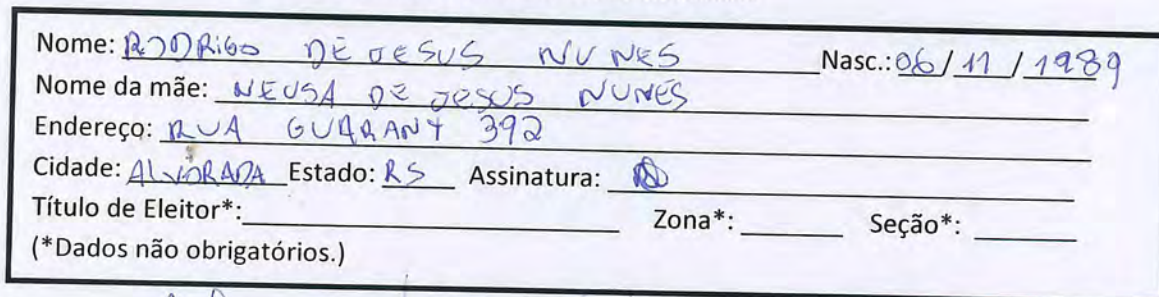 Nome: RODRIGO DE JESUS NUNES Nasc.: 06/11/1989
Nome da mãe: NEUSA DE JESUS NUNES
Endereço: RUA GUARANY 392
Cidade: ALVORADA Estado: RS Assinatura:
Título de Eleitor*: Zona*: Seção*:
(*Dados não obrigatórios.)